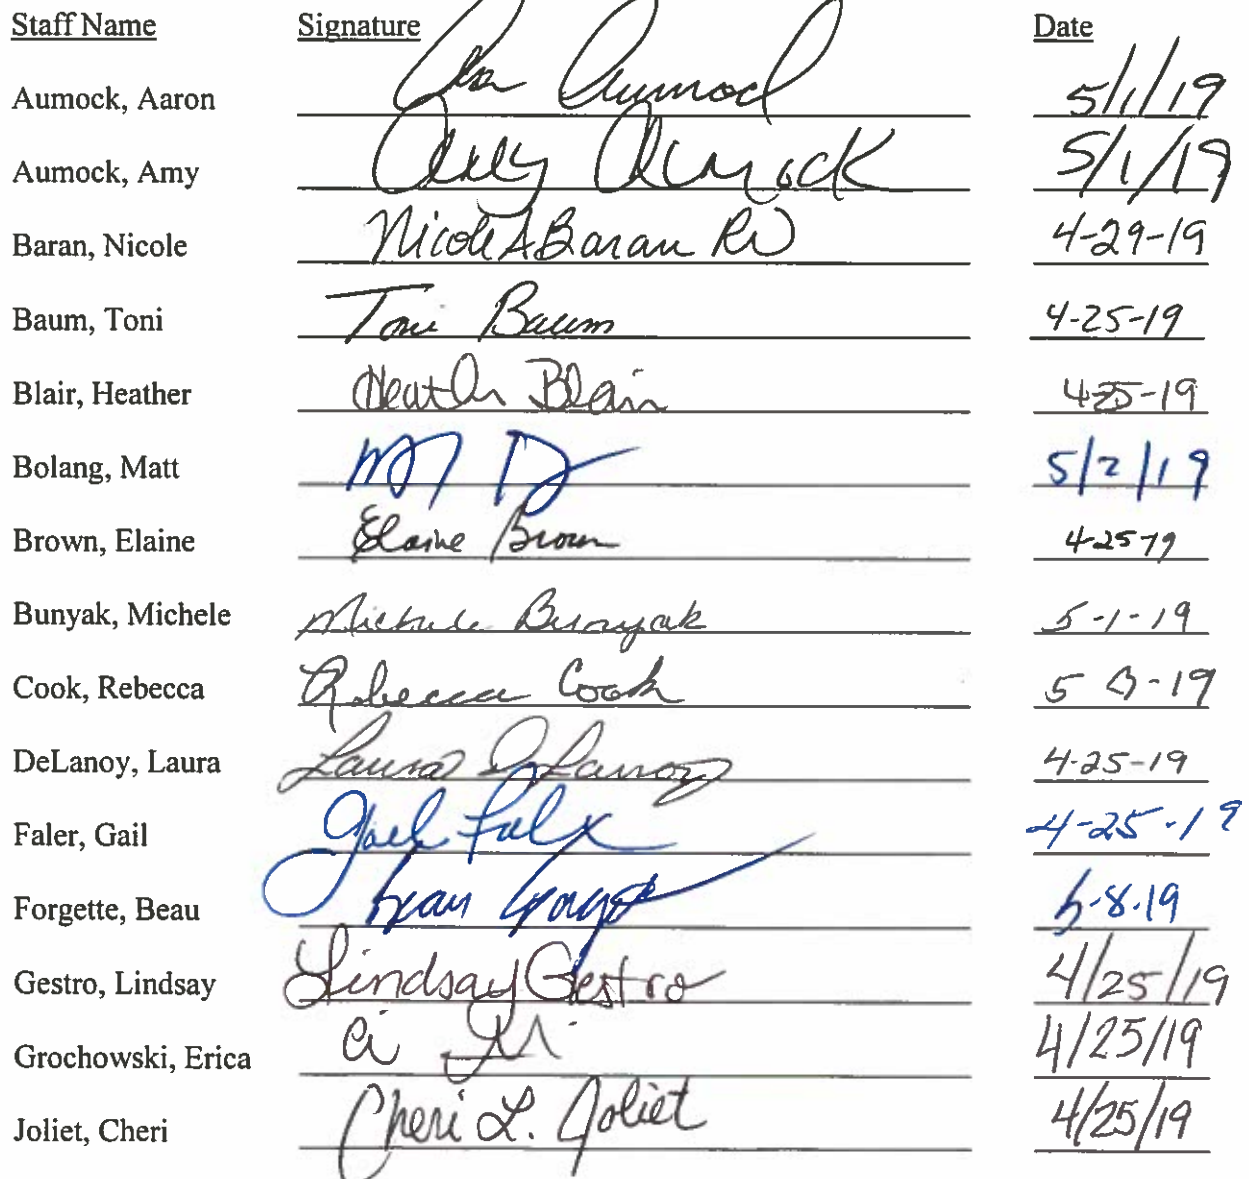 Staff Name Signature Date
Aumock, Aaron Aumock 5/1/19
Aumock, Amy Amy Aumock 5/1/19
Baran, Nicole Nicole A Baran RN 4-29-19
Baum, Toni Toni Baum 4-25-19
Blair, Heather Heather Blair 4-25-19
Bolang, Matt 5/2/19
Brown, Elaine Elaine Brown 4-25-19
Bunyak, Michele Michele Bunyak 5-1-19
Cook, Rebecca Rebecca Cook
DeLanoy, Laura Laura DeLanoy 4-25-19
Faler, Gail Gail 4-25-19
Forgette, Beau Beau 5-8-19
Gestro, Lindsay Lindsay Gestro 4/25/19
Grochowski, Erica 4/25/19
Joliet, Cheri Cheri L. Joliet 4/25/19